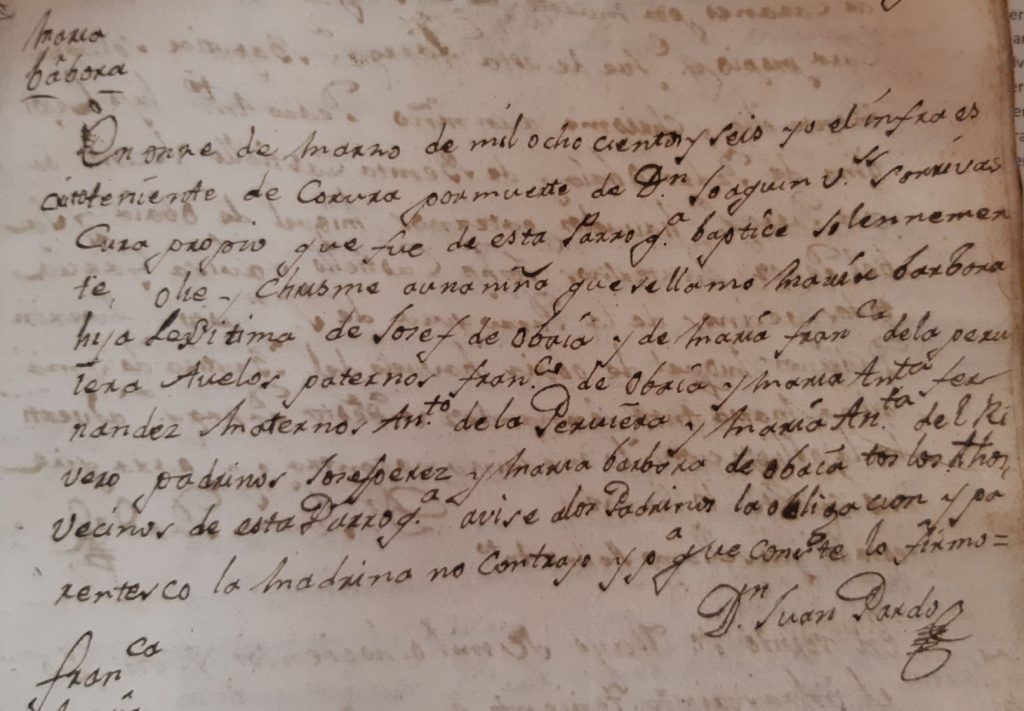 Maria
bãbora
En onre de Marzo de mil ocho cientos y seis yo el infraes
crito teniente de Corura por muerte de Dn. Joaquin V.ss Sorrivas
Cura propio que fue de esta Parroq.a baptice solennemen
te, olie y Chrisme a una niña que se llamo María barbora
hija Lexitima de Josef de Obaía y de Maria Fran.ca de la peru
iera Avelos paternos Fran.co de Obaía y Maria Anta fer
nandez Maternos An.to de la Peruiera y María An.ta del Ri
vero padrinos Josef perez y Maria barbora de Obaía tos los thos
Vecinos de esta Parroq.a avise alos Padrinos la obligacion y pa
rentesco la Madrina no Contrajo y p.a que conste lo firmo =
Dn. Juan Pardo
fran.ca